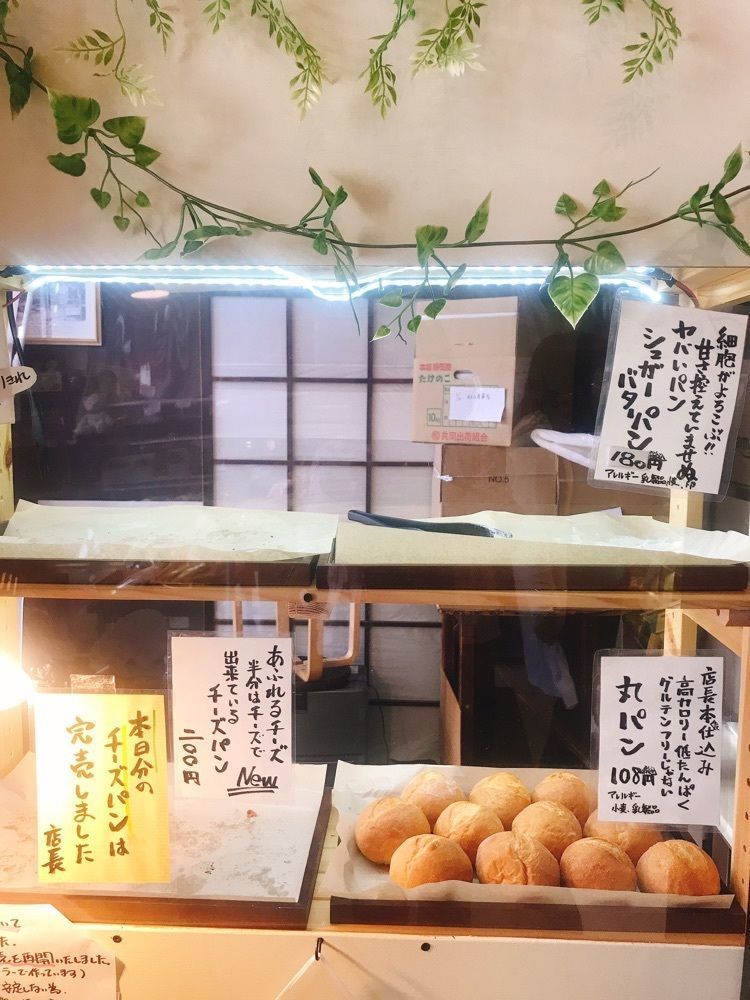 細胞がよろこぶ!!
甘さ控えていませぬ
ヤバいパン
シュガーバタパン
180円
アレルギー 乳製品、小麦、卵
本場 静岡産
たけのこ
10kg
共同出荷組合
NO.5
きれ
あふれるチーズ
半分はチーズで
出来ている
チーズパン
二〇〇円
New
本日分の
チーズパンは
完売しました
店長
店長本仕込み
高カロリー低たんぱく
グルテンフリーじゃない
丸パン
108円
アレルギー
小麦、乳製品
いて
た。
を再開いたしました。
ラーで作っています)
安定しない為、